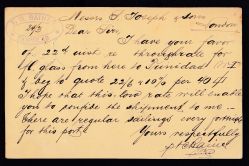 Messrs S. Joseph & Sons
London
Dear Sirs,
I have your favor
of 22nd inst re through rate for
glass from here to Trinidad
beg to quote 22/6 + 10% per
I hope that this low rate will enable
you to confide the shipment to me.
There are regular sailings every fortnight
for this port.
Yours respectfully